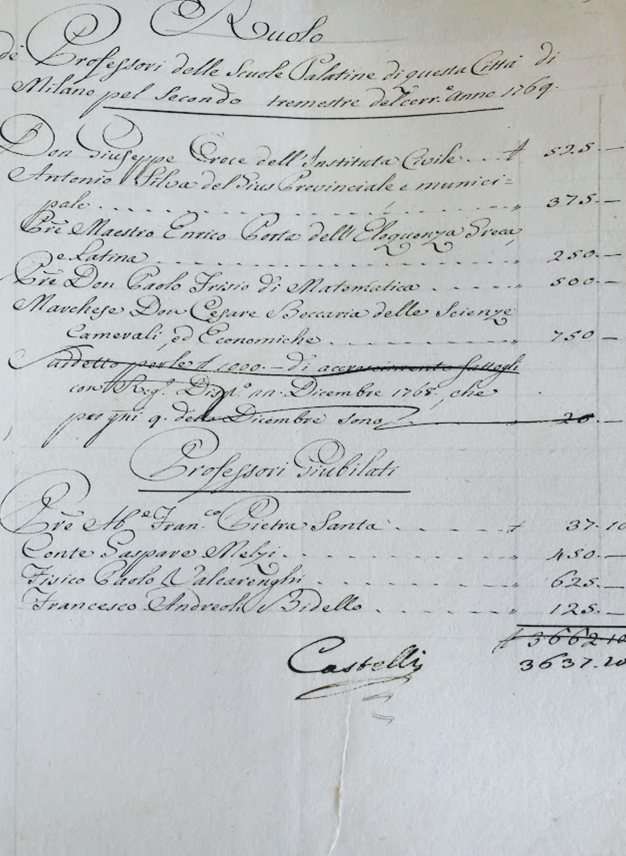 Ruolo
de Professori delle Scuole Palatine di questa Città di
Milano pel Secondo tremestre del corr.e Anno 1769.
Don Giuseppe Croce dell'Instituta Civile . . . £ 525.—
Antonio Silva del Gius Provinciale e munici=
pale . . . . . . . . . . . . . . . " 375.—
Pre Maestro Enrico Porta dell'Eloquenza Greca,
e Latina . . . . . . . . . . . . . . " 250.—
Pre Don Paolo Frisio di Matematica . . . . " 500.—
Marchese Don Cesare Beccaria delle Scienze
Camerali, ed Economiche . . . . . . . " 750—
Suddetto per le £ 1000.— di accrescimento fattogli
con Reg. Disp.o Dicembre 1768, che
per gni 9. detto Dicembre sono 25.—
Professori Giubilati
Pre Ab.e Fran.co Pietra Santa . . . . . . £ 37.10
Conte Gaspare Melzi . . . . . . . . . " 450.—
Fisico Paolo Valcarenghi . . . . . . . . " 625.—
Francesco Andreoli Bidello . . . . . . . " 125.—
£ 3662.10
Castelli 3637.10